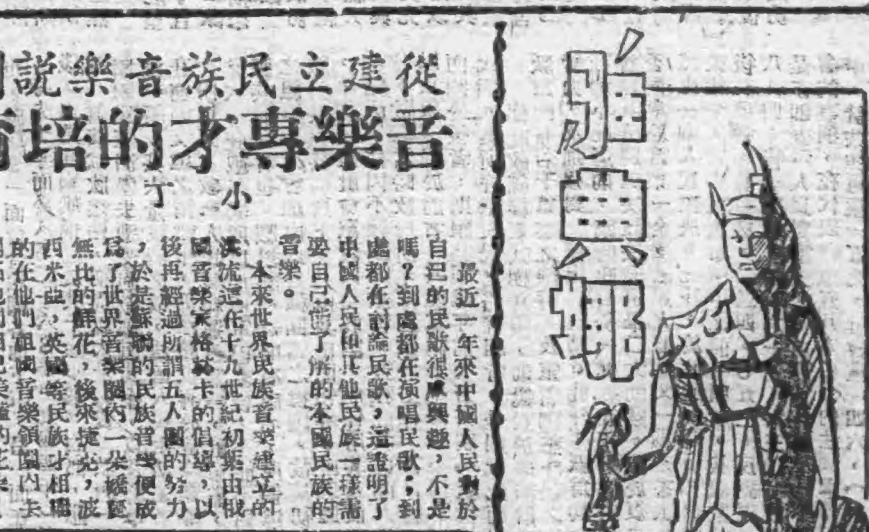 雅典娜
從建立民族音樂說
音樂專才的培育
小丁
最近一年來中國人民對於
自己的民歌很感興趣,不是
嗎?到處都在演唱民歌;到
處都在討論民歌,這證明了
中國人民和其他民族一樣需
要自己能了解的本國民族的
音樂。
本來世界民族音樂建立的
流這在十九世紀初葉由俄
國音樂家格林卡的倡導,以
後再經過所謂五人團的努力
,於是蘇聯的民族音樂便成
爲了世界音樂園內一朵嬌豔
無比的鮮花,後來捷克,波
西米亞,英國等民族才相繼
的在他們祖國音樂領園內